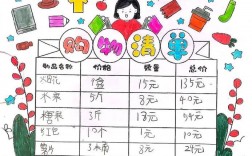 购物清单
物品名称 价格 数量 总价
9盒 15元 135元
水果 5斤 8元 40元
橙子 3斤 18元 54元
红包 10个 1元 10元
3桶 8元 24元